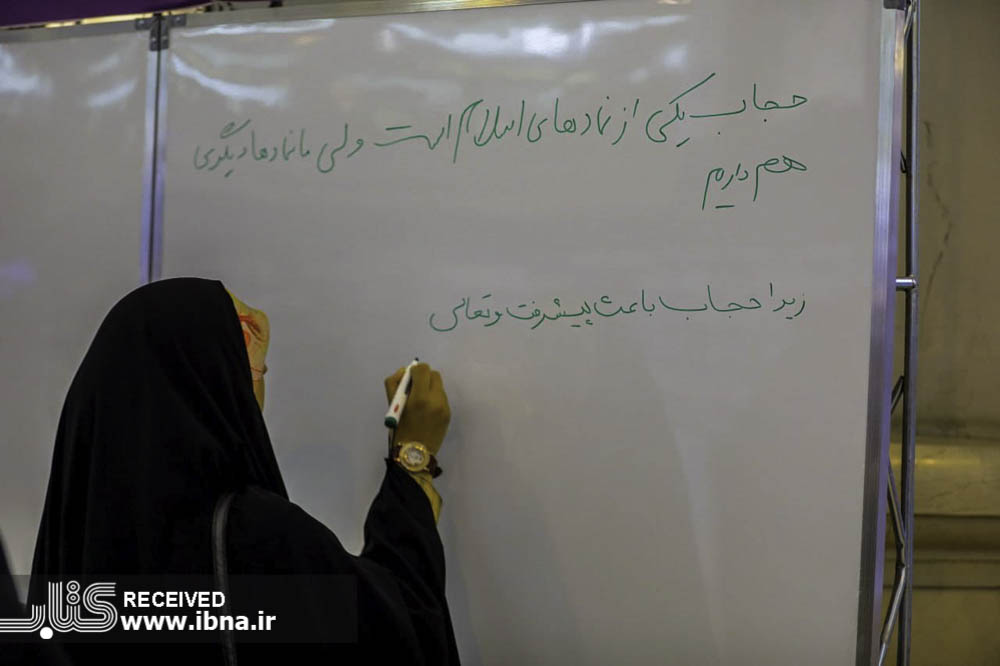 حجاب یکی از نمادهای اسلام است ولی ما نمادها دیگری
هم داریم
زیرا حجاب باعث پیشرفت و تعالی
کتاب RECEIVED
www.ibna.ir